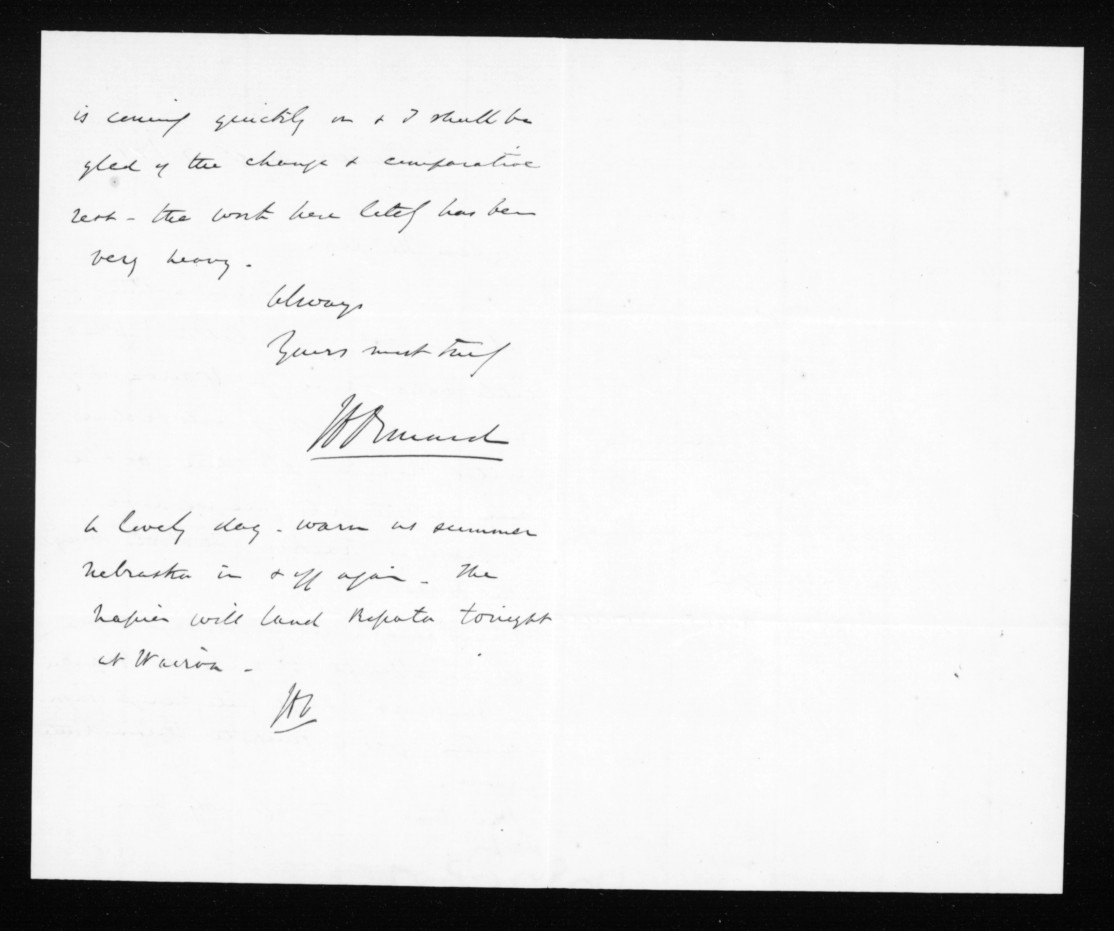 is coming quickly on & I shall be
glad of the change & comparative
rest - the work here lately has been
very heavy -
Always
Yours most truly
J D Ormond
A lovely day - warm as summer
Nebraska in & off again - The
Napier will land Ropata tonight
at Wairoa -
JDO